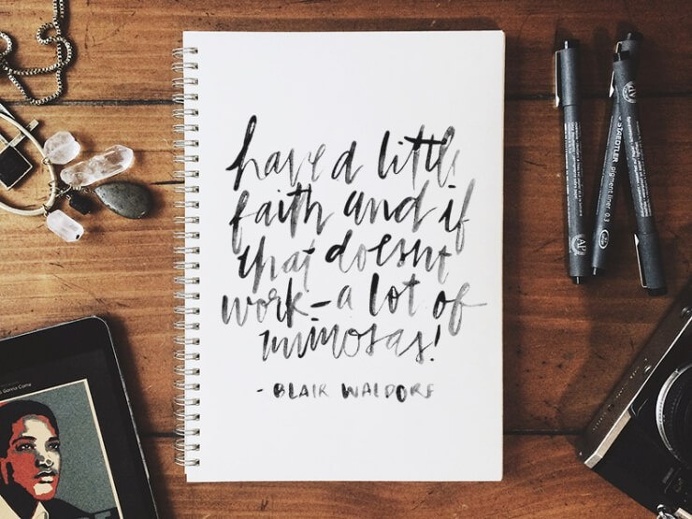 have a little
faith and if
that doesnt
work - a lot of
mimosas!
- BLAIR WALDORF
STAEDTLER
pigment liner 0.1
Gonna Come